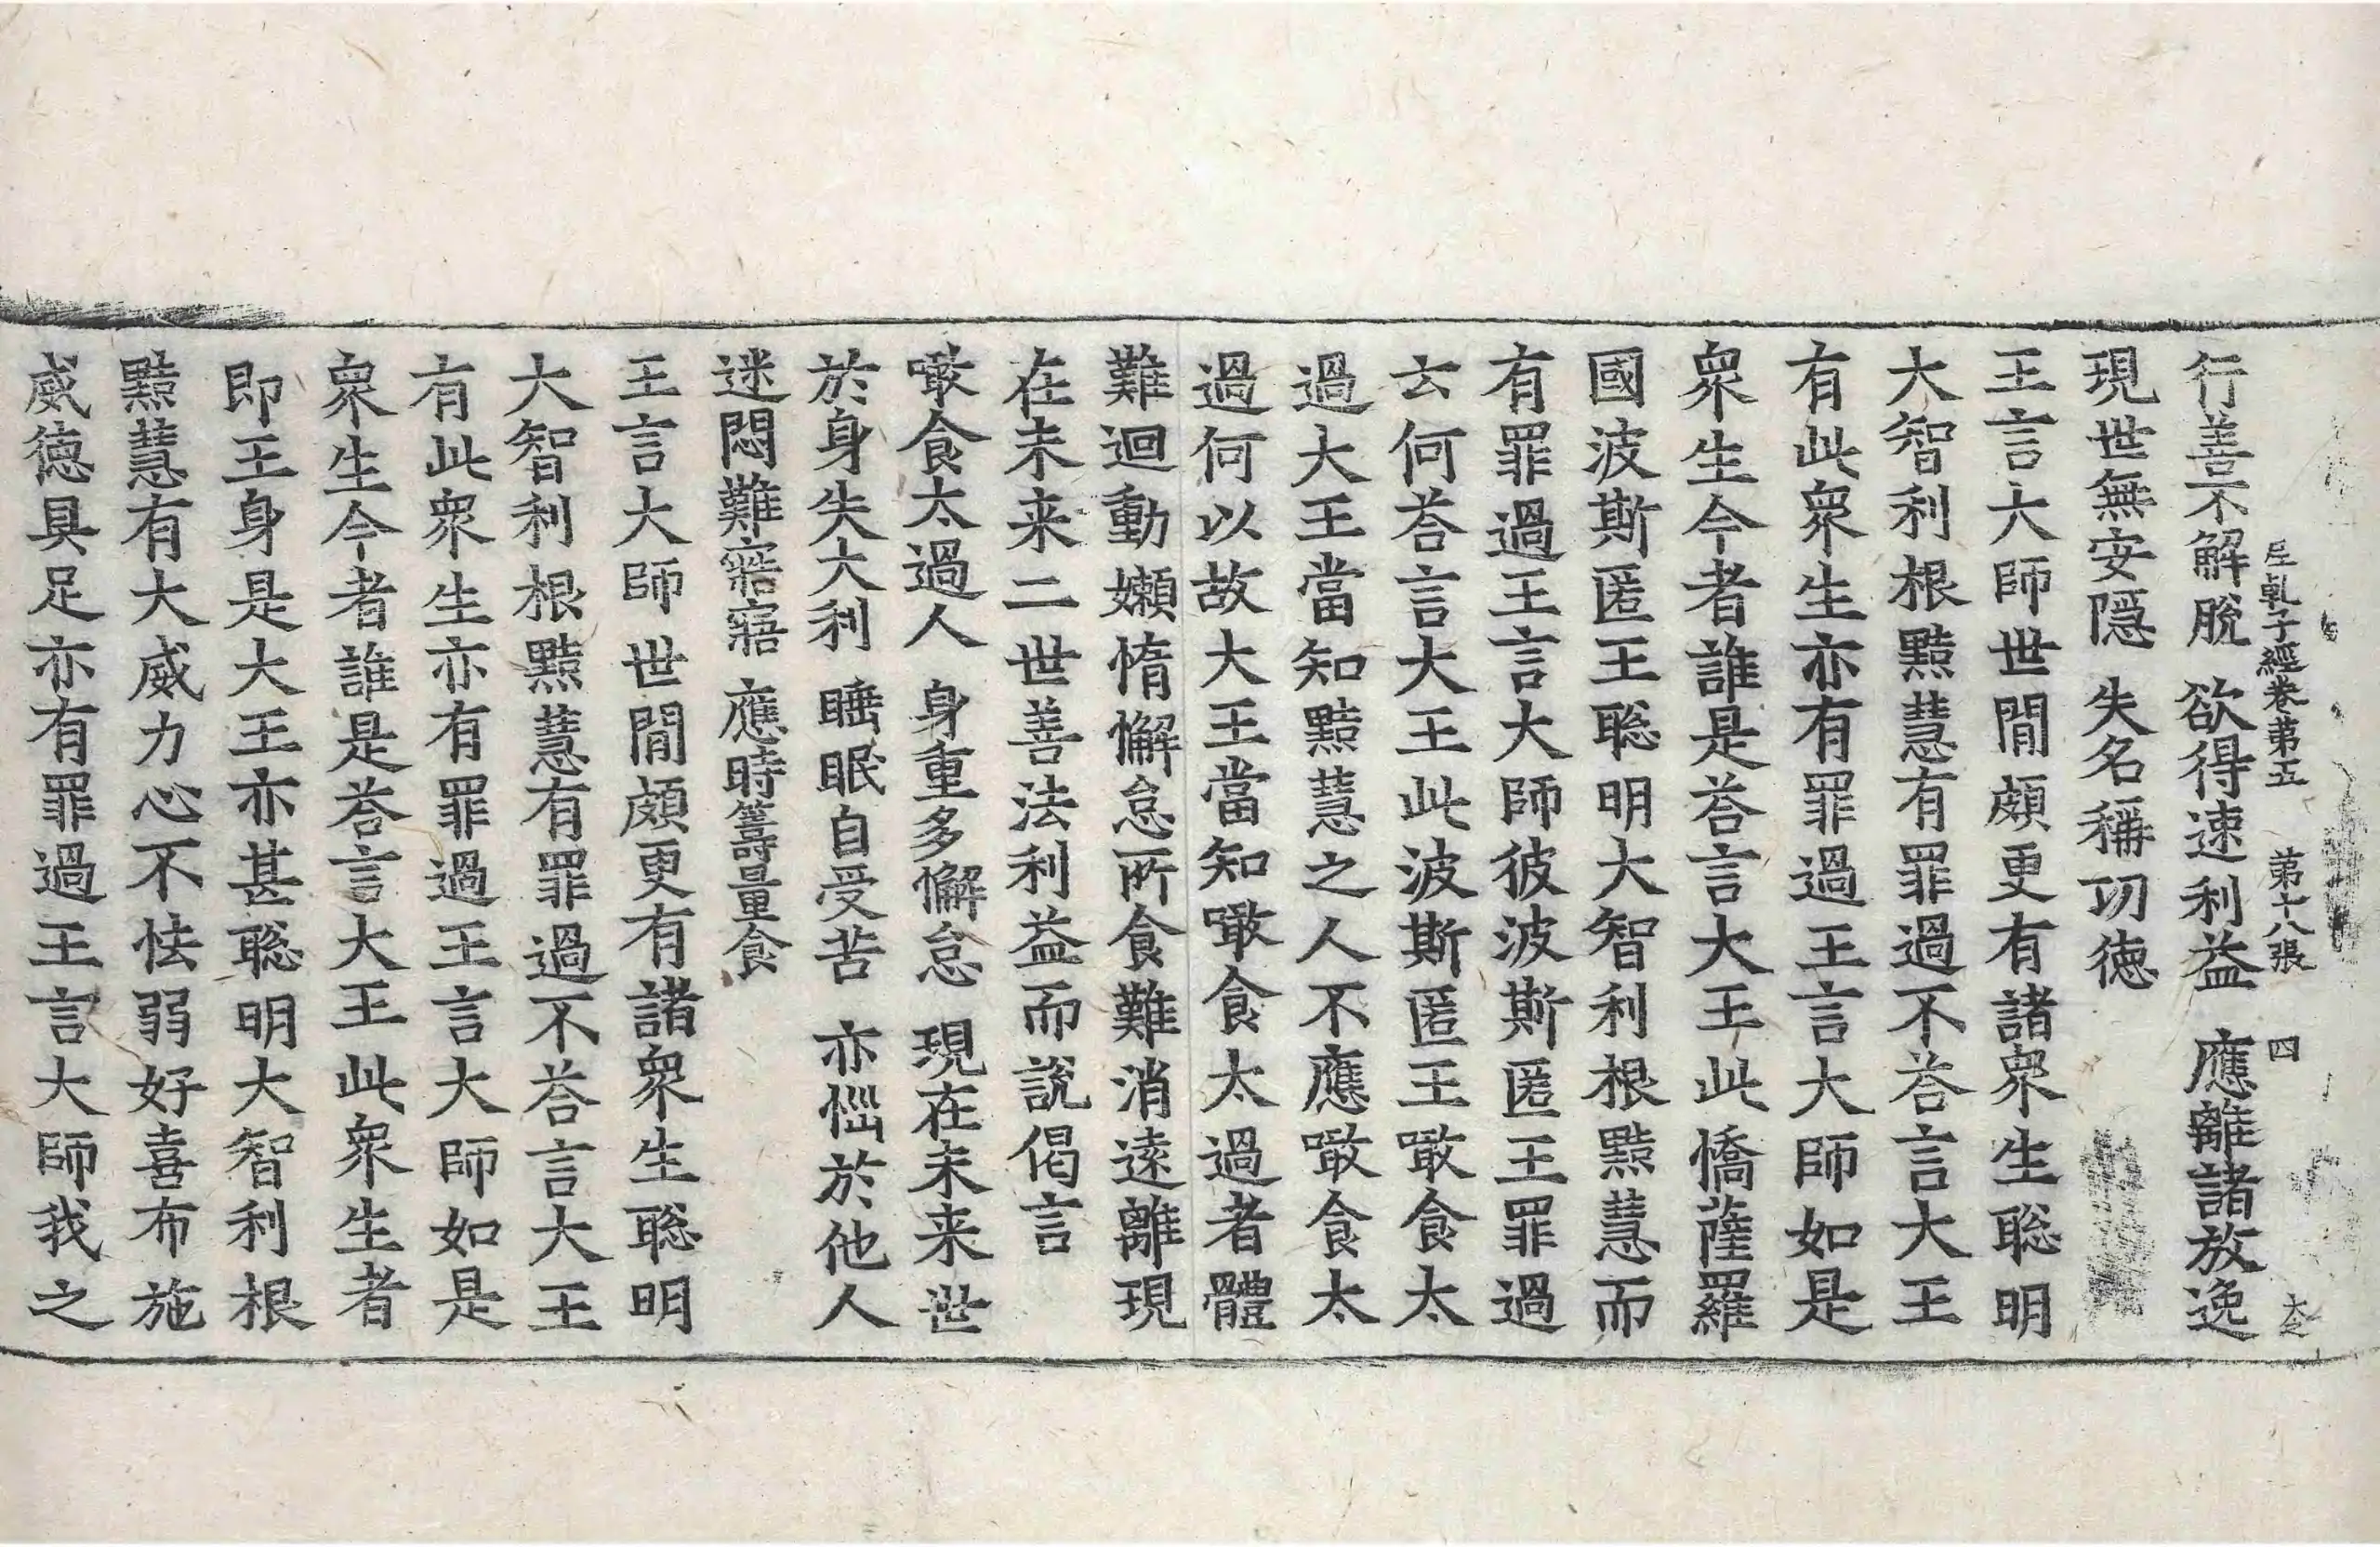 行善不解脫 欲得速利益 應離諸放逸
𡰱乹子經卷苐五 苐十八張 四
現世無安隱 失名稱㓛徳
王言大師世閒頗更有諸衆生聡明
大智利根黠慧有罪過不荅言大王
有此衆生亦有罪過王言大師如是
衆生今者誰是荅言大王此憍薩羅
國波斯匿王聡明大智利根黠慧而
有罪過王言大師彼波斯匿王罪過
云何荅言大王此波斯匿王噉食太
過大王當知黠慧之人不應噉食太
過何以故大王當知噉食太過者體
難迴動嬾惰懈怠所食難消逺離現
在未来二世善法利益而說偈言
噉食太過人 身重多懈怠 現在未来世
於身失大利 睡眠自受苦 亦惱於他人
迷悶難寤寤 應時籌量食
王言大師世閒頗更有諸衆生聡明
大智利根黠慧有罪過不荅言大王
有此衆生亦有罪過王言大師如是
衆生今者誰是荅言大王此衆生者
即王身是大王亦甚聡明大智利根
黠慧有大威力心不怯弱好喜布施
威徳具足亦有罪過王言大師我之